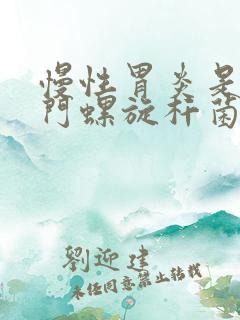 慢性胃炎是
門螺旋杆菌
劉迎建
未经同意禁止转载